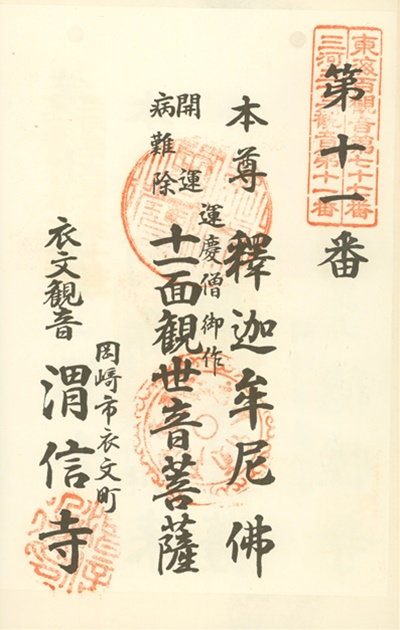 東海百観音第七十七番
三河三十三観音第十一番
第十一番
本尊 釋迦牟尼佛
運慶僧御作
開運
病難除
十一面観世音菩薩
岡崎市衣文町
衣文観音 渭信寺